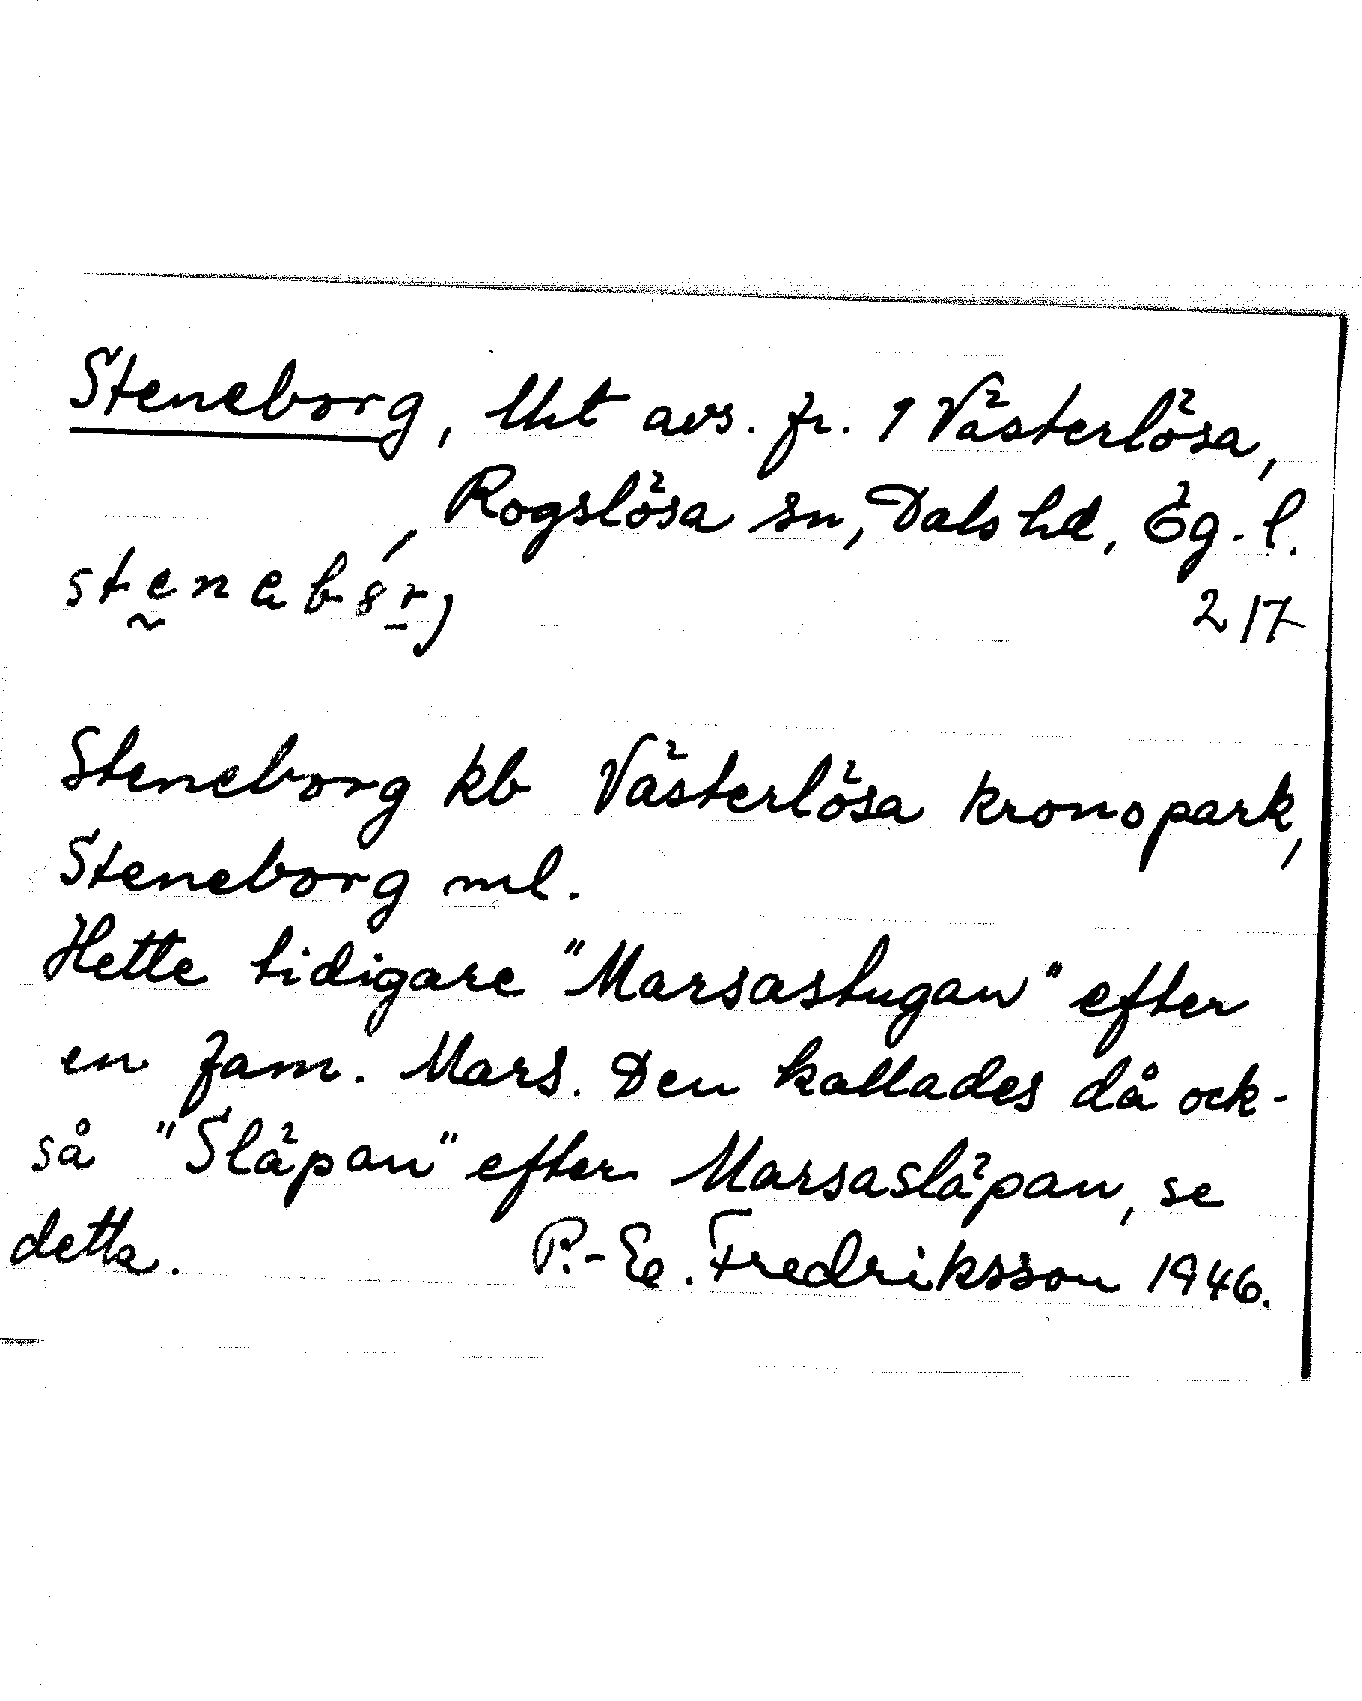 Steneborg, lht avs. fr. 1 Västerlösa,
Rogslösa sn, Dals hd, Ög. l.
217
Steneborg kb Västerlösa kronopark,
Steneborg ml.
Hette tidigare "Marsastugan" efter
en fam. Mars. Den kallades då ock-
så "Släpan" efter Marsasläpan, se
detta. P.-E. Fredriksson 1946.